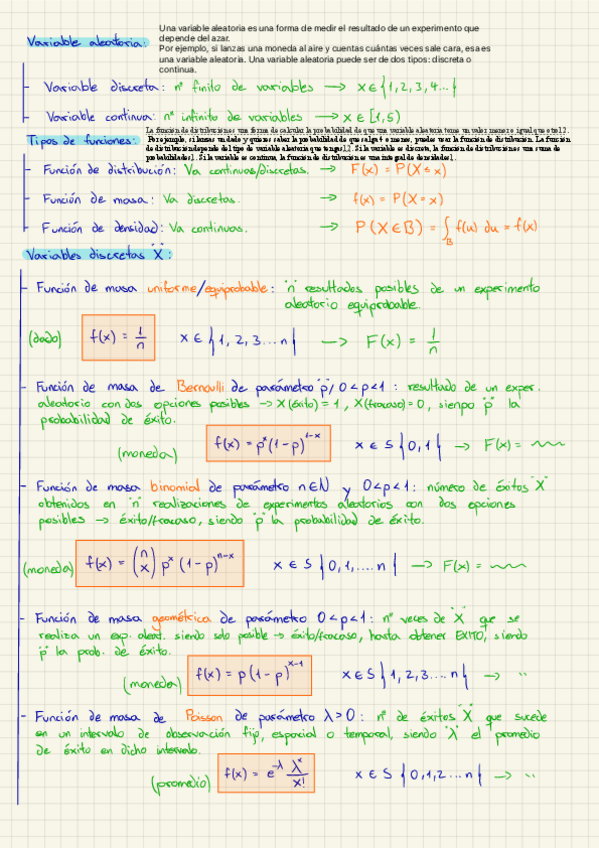 Una variable aleatoria es una forma de medir el resultado de un experimento que
depende del azar.
Variable aleatoria:
Por ejemplo, si lanzas una moneda al aire y cuentas cuántas veces sale cara, esa es
una variable aleatoria. Una variable aleatoria puede ser de dos tipos: discreta o
continua.
Variable discreta: nº finito de variables → x ∈ {1, 2, 3, 4...}
Variable continua: nº infinito de variables → x ∈ [1, 5)
La función de distribución es una forma de calcular la probabilidad de que una variable aleatoria tome un valor menor o igual que otro12.
Tipos de funciones:
Por ejemplo, si lanzas un dado y quieres saber la probabilidad de que salga 4 o menos, puedes usar la función de distribución. La función
de distribución depende del tipo de variable aleatoria que tengas12. Si la variable es discreta, la función de distribución es una suma de
probabilidades1. Si la variable es continua, la función de distribución es una integral de densidades1.
Función de distribución: Va continuas/discretas. → F(x) = P(X ≤ x)
Función de masa: Va discretas. → f(x) = P(X = x)
Función de densidad: Va continuas. → P(X ∈ B) = ∫_B f(u) du = f(x)
Variables discretas "X":
Función de masa uniforme/equiprobable: "n" resultados posibles de un experimento
aleatorio equiprobable.
(dado) f(x) = 1/n x ∈ {1, 2, 3... n} → F(x) = 1/n
Función de masa de Bernoulli de parámetro "p", 0<p<1: resultado de un exper.
aleatorio con dos opciones posibles → X(éxito) = 1, X(fracaso) = 0, sienpo "p" la
probabilidad de éxito.
(moneda) f(x) = p^x (1-p)^{1-x} x ∈ S {0, 1} → F(x) =
Función de masa binomial de parámetro n∈N y 0<p<1: número de éxitos "X"
obtenidos en "n" realizaciones de experimentos aleatorios con dos opciones
posibles → éxito/fracaso, siendo "p" la probabilidad de éxito.
(moneda) f(x) = (n x) p^x (1-p)^{n-x} x ∈ S {0, 1, .... n} → F(x) =
Función de masa geométrica de parámetro 0<p<1: nº veces de "X" que se
realiza un exp. aleat. siendo solo posible → éxito/fracaso, hasta obtener EXITO, siendo
"p" la prob. de éxito.
(moneda) f(x) = p(1-p)^{x-1} x ∈ S {1, 2, 3.... n} → "
Función de masa de Poisson de parámetro λ>0: nº de éxitos "X" que sucede
en un intervalo de observación fijo, espacial o temporal, siendo "λ" el promedio
de éxito en dicho intervalo.
(promedio) f(x) = e^{-λ} λ^x/x! x ∈ S {0, 1, 2.... n} → "